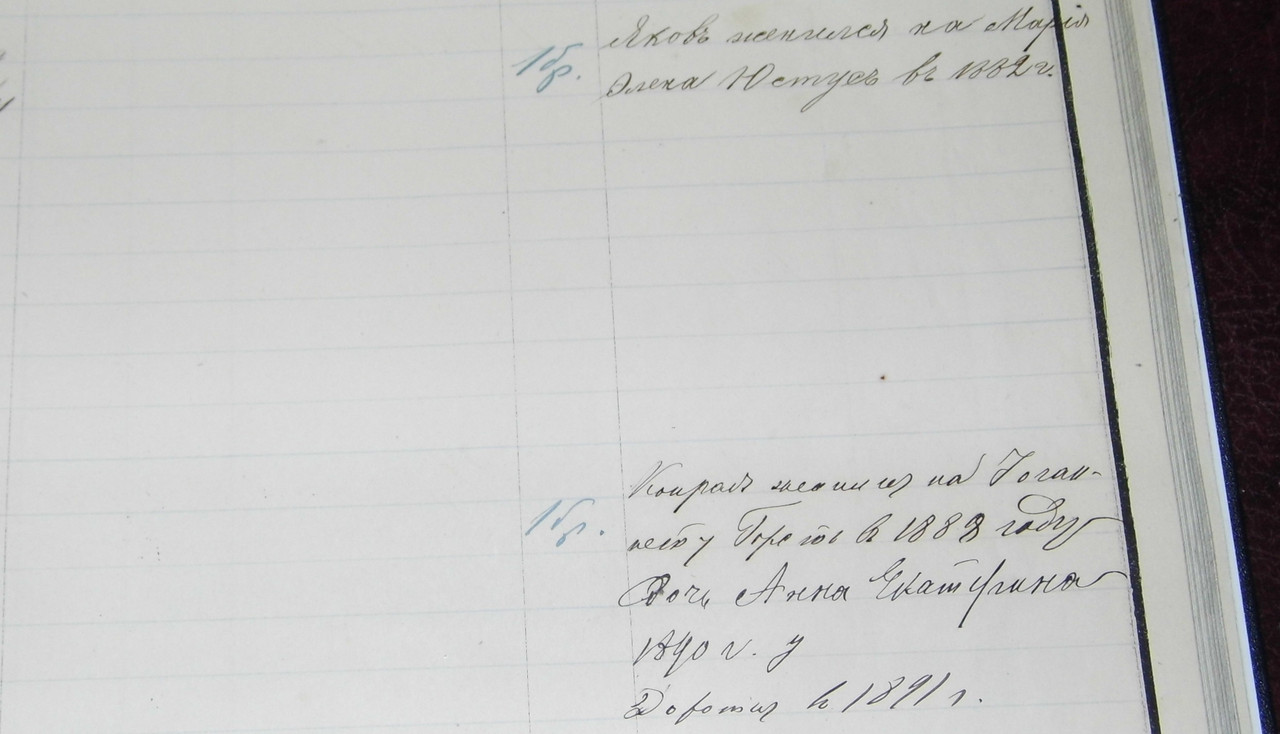 1 бр. Яковъ женился на Марія
Элена Юстусъ въ 1882 г.
1 бр. Конрадъ женился на Іоган-
нету в 1888 году
дочь Анна Екатерина
1890 г. у
Доротия в 1891 г.